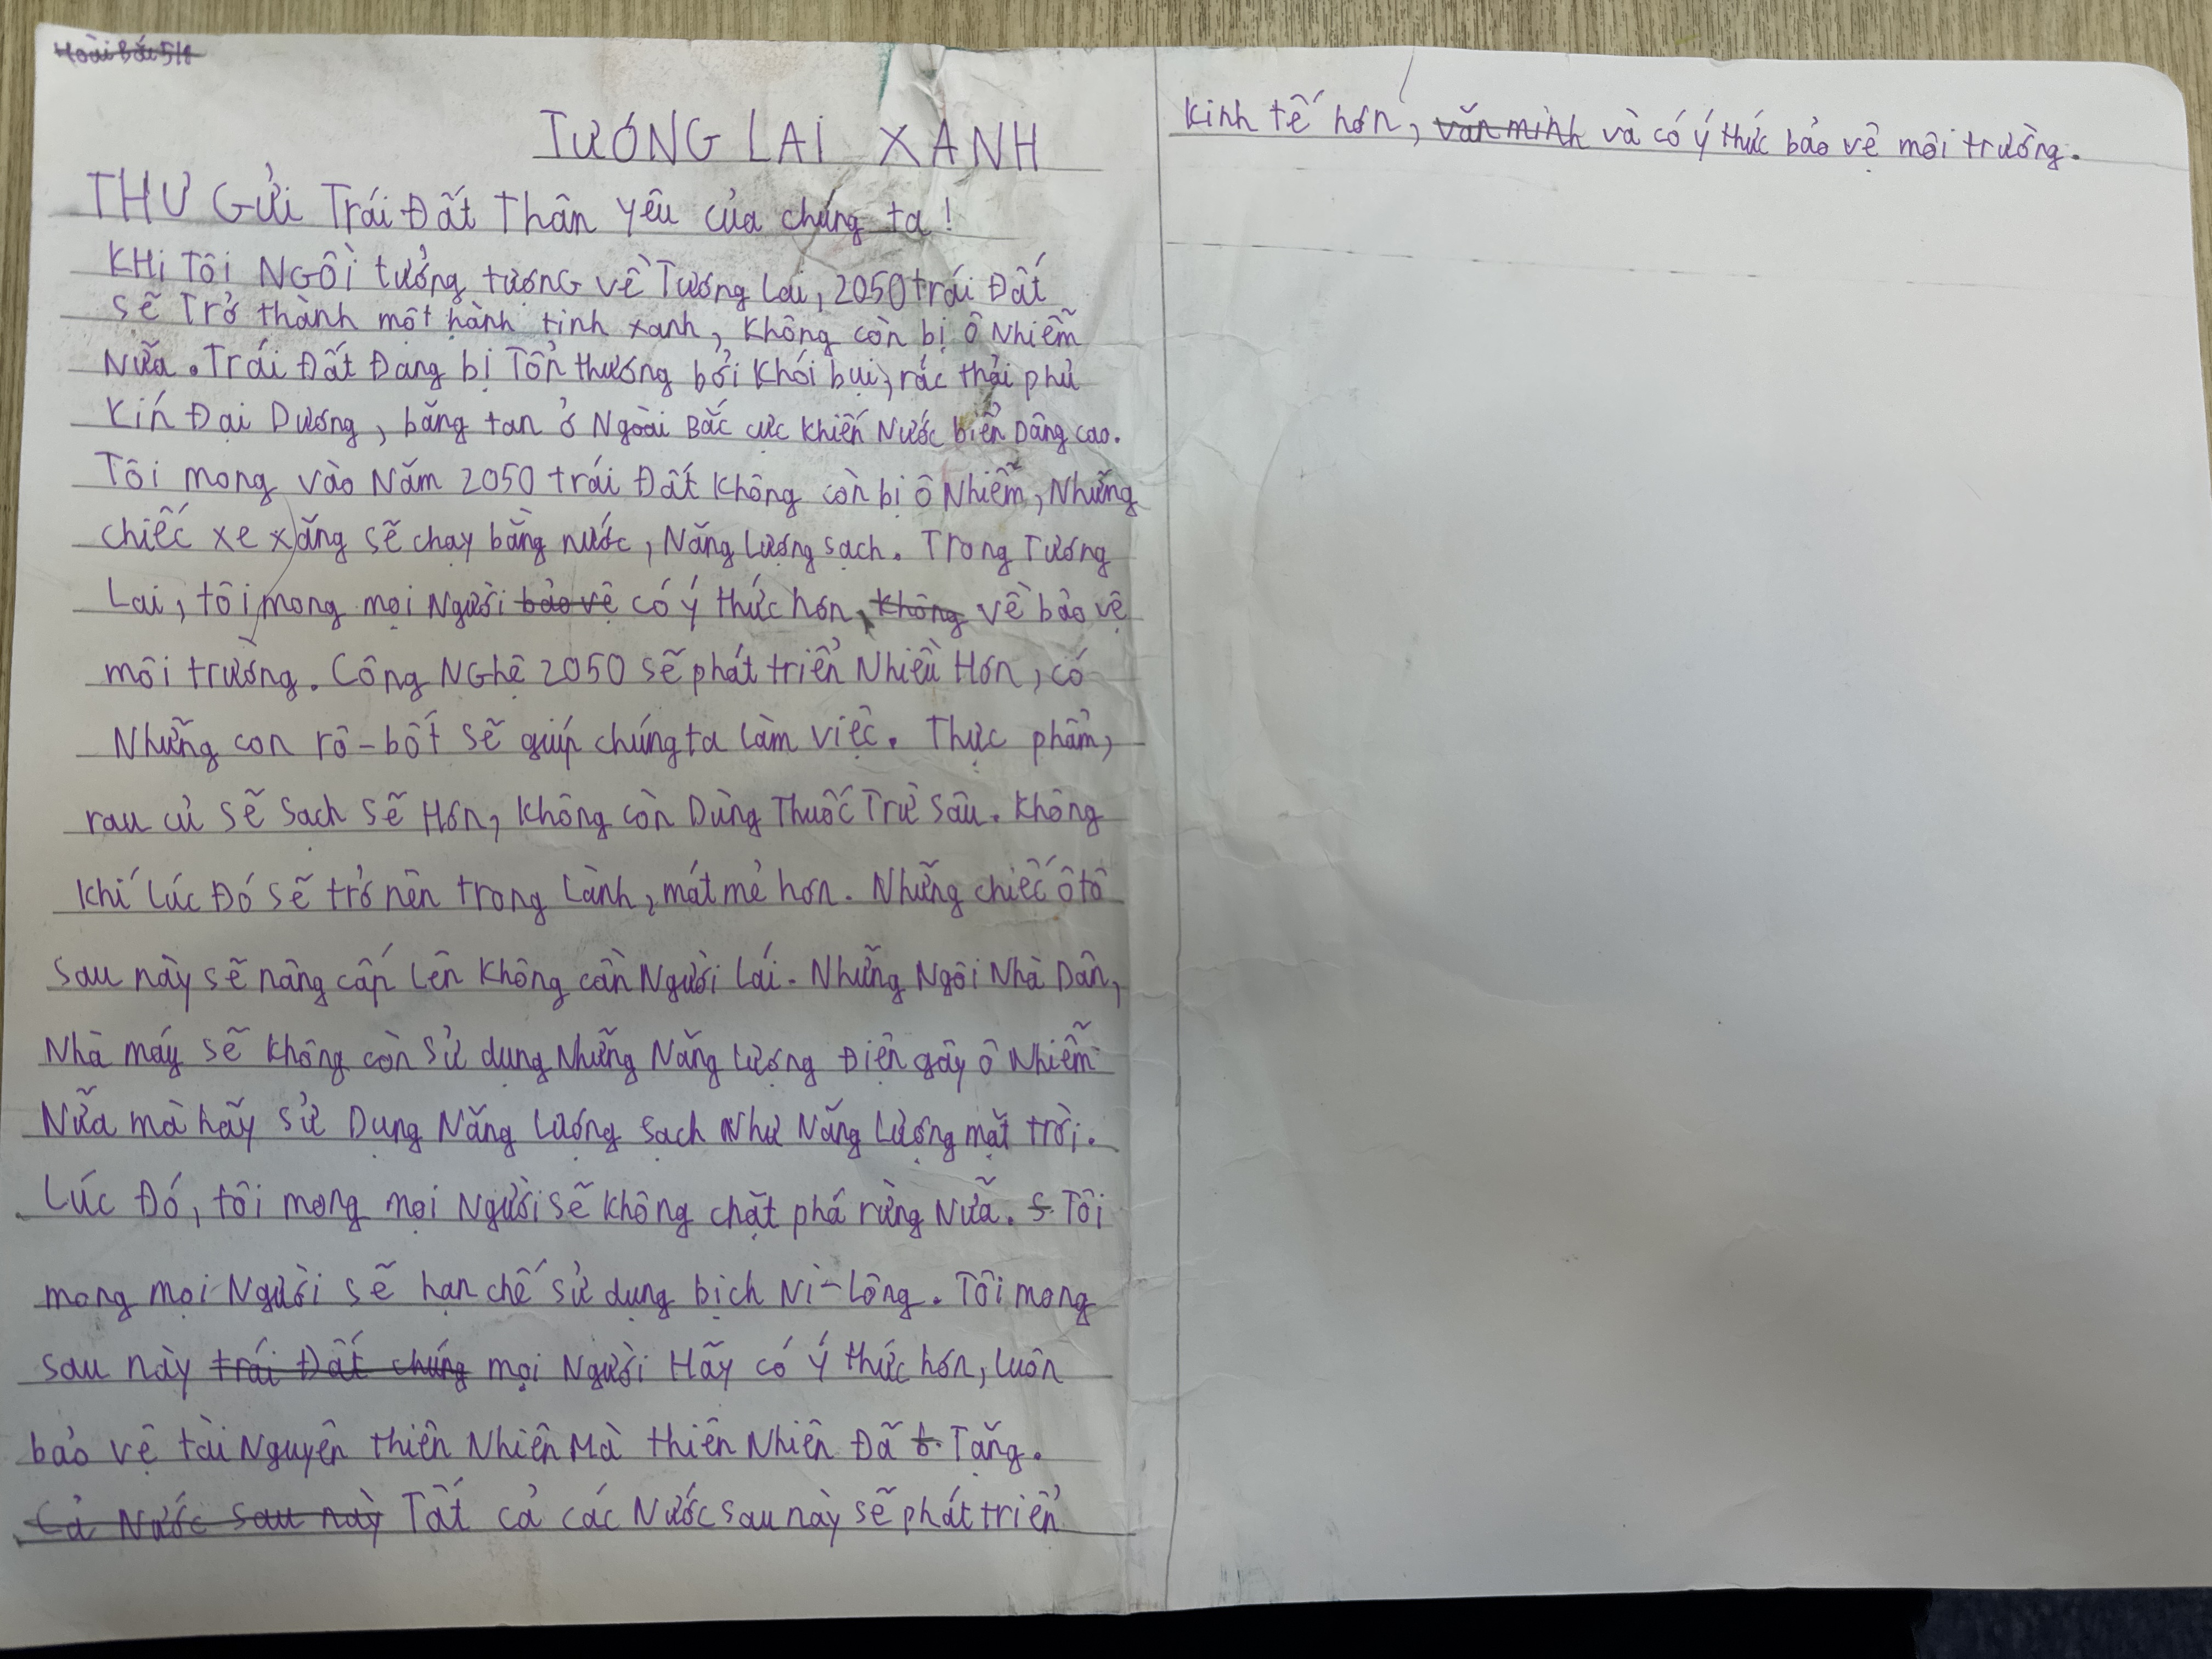 Hoài Bắc 5H
TƯƠNG LAI XANH
THƯ GỬI Trái Đất Thân yêu của chúng ta!
KHi TÔi NGỒi tưởng tượnG về Tương Lai, 2050 trái Đất
sẽ Trở thành một hành tinh xanh, Không còn bị ô Nhiễm
Nữa. Trái Đất Đang bị Tổn thương bởi Khói bụi, rác thải phủ
Kín Đại Dương, băng tan ở Ngoài Bắc cực Khiến Nước biển Dâng cao.
Tôi mong vào Năm 2050 trái Đất Không còn bị ô Nhiễm, Những
chiếc xe xăng sẽ chạy bằng nước, Năng Lượng sạch. Trong Tương
Lai, tôi mong mọi Người bảo vệ có ý thức hơn, Không về bảo vệ
môi trường. Công NGhệ 2050 sẽ phát triển Nhiều Hơn, có
Những con rô-bốt sẽ giúp chúng ta Làm việc. Thực phẩm,
rau củ sẽ sạch sẽ Hơn, Không còn Dùng Thuốc Trừ sâu. Không
Khí Lúc Đó sẽ trở nên trong Lành, mát mẻ hơn. Những chiếc ôtô
sau này sẽ nâng cấp Lên Không cần Người Lái. Những Ngôi Nhà Dân,
Nhà máy sẽ Không còn sử dụng Những Năng Lượng Điện gây ô Nhiễm
Nữa mà hãy sử Dụng Năng Lượng sạch Như Năng Lượng mặt trời.
Lúc Đó, tôi mong mọi Người sẽ Không chặt phá rừng Nữa. S Tôi
mong mọi Người sẽ hạn chế sử dụng bịch Ni-Lông. Tôi mong
sau này trái Đất chúng mọi Người Hãy có ý thức hơn, Luôn
bảo vệ tài Nguyên thiên Nhiên Mà thiên Nhiên Đã t Tặng.
Cả Nước sau này Tất cả các Nước sau này sẽ phát triển
Kinh tế hơn, văn minh và có ý thức bảo vệ môi trường.